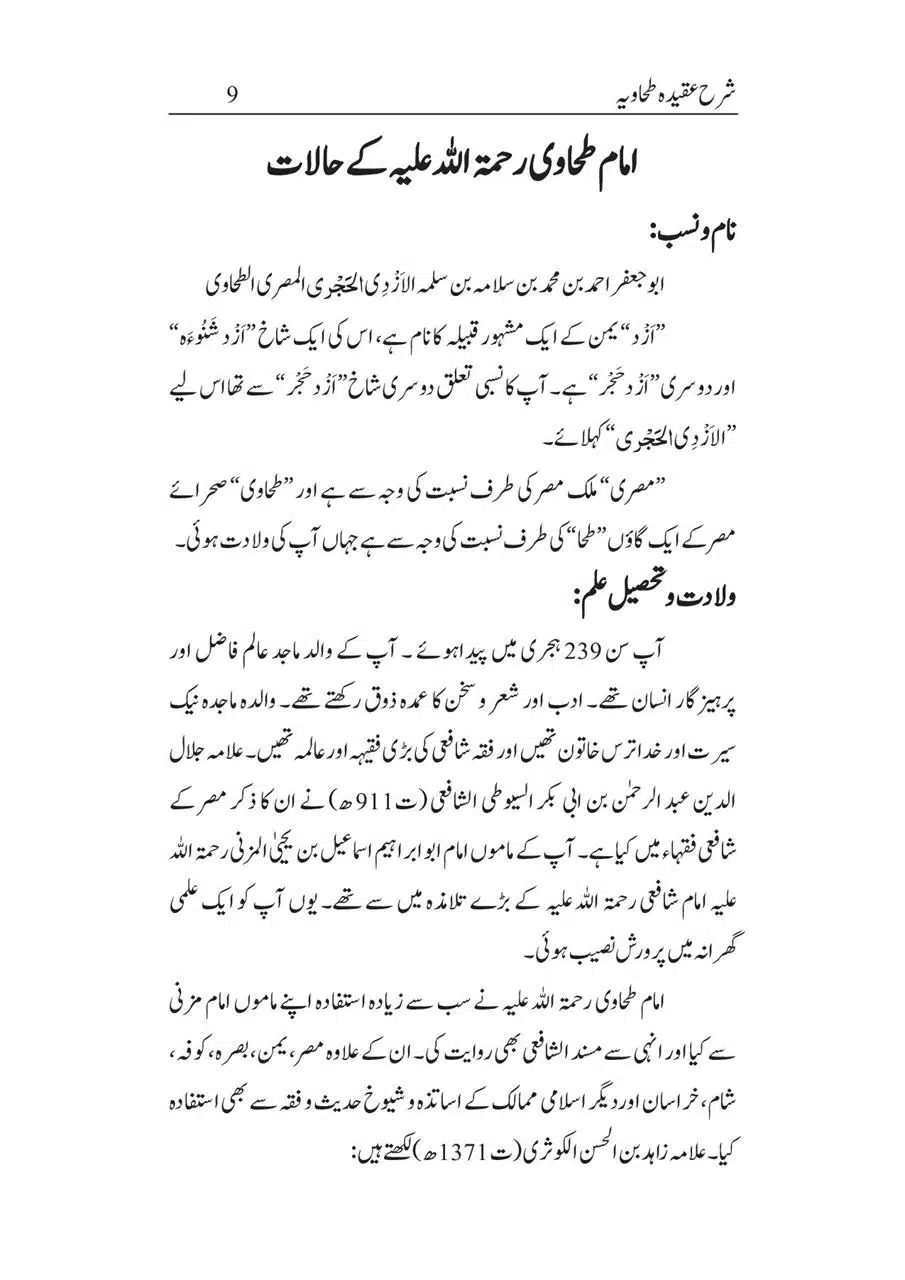 شرح عقیدہ طحاویہ 9
امام طحاوی رحمۃ اللہ علیہ کے حالات
نام و نسب:
ابو جعفر احمد بن محمد بن سلامہ بن سلمہ الاَزْدِی الحَجْری المصری الطحاوی
”اَزْد“ یمن کے ایک مشہور قبیلہ کا نام ہے، اس کی ایک شاخ ”اَزْد شَنُوءَہ“
اور دوسری ”اَزْد حَجْر“ ہے۔ آپ کا نسبی تعلق دوسری شاخ ”اَزْد حَجْر“ سے تھا اس لیے
”الاَزْدِی الحَجْری“ کہلائے۔
”مصری“ ملک مصر کی طرف نسبت کی وجہ سے ہے اور ”طحاوی“ صحرائے
مصر کے ایک گاؤں ”طحا“ کی طرف نسبت کی وجہ سے ہے جہاں آپ کی ولادت ہوئی۔
ولادت و تحصیل علم:
آپ سن 239 ہجری میں پیدا ہوئے ۔ آپ کے والد ماجد عالم فاضل اور
پرہیز گار انسان تھے۔ ادب اور شعر و سخن کا عمدہ ذوق رکھتے تھے۔ والدہ ماجدہ نیک
سیرت اور خدا ترس خاتون تھیں اور فقہ شافعی کی بڑی فقیہہ اور عالمہ تھیں۔ علامہ جلال
الدین عبد الرحمٰن بن ابی بکر السیوطی الشافعی (ت911ھ) نے ان کا ذکر مصر کے
شافعی فقہاء میں کیا ہے۔ آپ کے ماموں امام ابو ابراہیم اسماعیل بن یحییٰ المزنی رحمۃ اللہ
علیہ امام شافعی رحمۃ اللہ علیہ کے بڑے تلامذہ میں سے تھے۔ یوں آپ کو ایک علمی
گھرانہ میں پرورش نصیب ہوئی۔
امام طحاوی رحمۃ اللہ علیہ نے سب سے زیادہ استفادہ اپنے ماموں امام مزنی
سے کیا اور انہی سے مسند الشافعی بھی روایت کی۔ ان کے علاوہ مصر، یمن، بصرہ، کوفہ،
شام، خراسان اور دیگر اسلامی ممالک کے اساتذہ و شیوخ حدیث و فقہ سے بھی استفادہ
کیا۔ علامہ زاہد بن الحسن الکوثری (ت1371ھ) لکھتے ہیں: